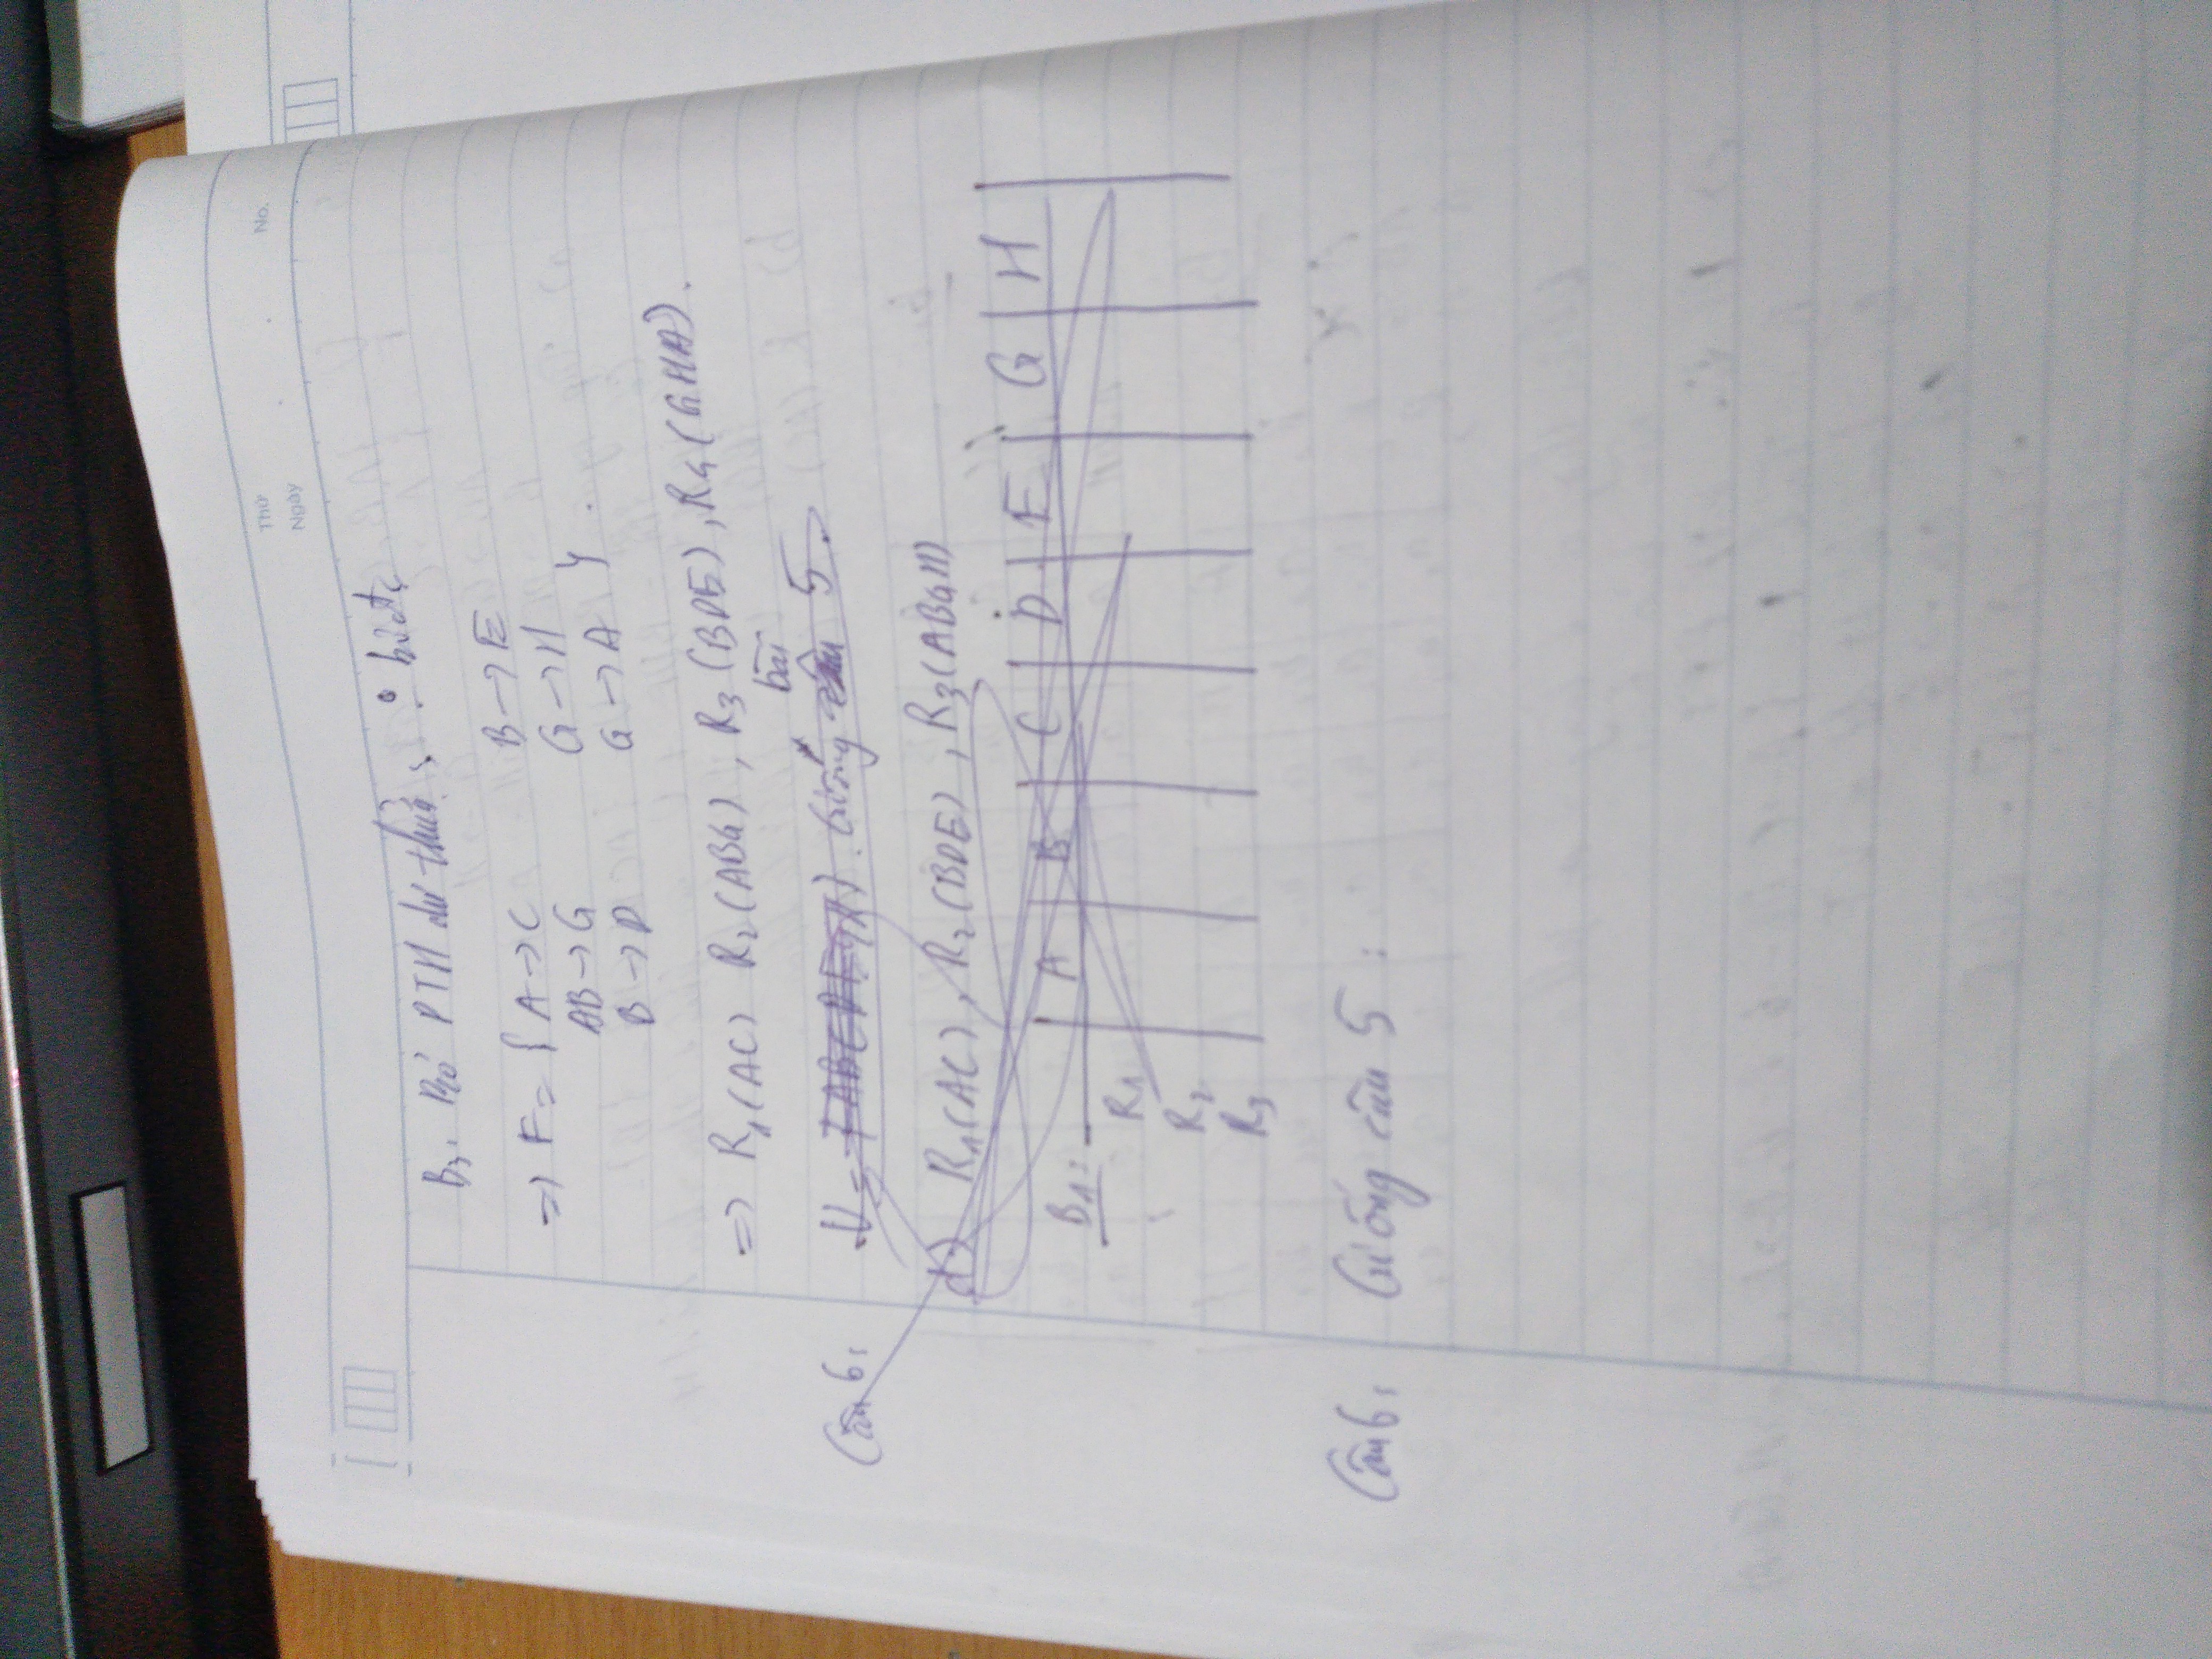 Thứ
No.
Ngày
B3. Bỏ PTH dư thừa:
=> F = { A -> C B -> E
AB -> G G -> H
B -> D G -> A }.
=> R1(AC) R2(ABG), R3(BDE), R4(GHA).
Câu 6: U = {ABCDEGH}. Giống bài câu 5.
d) R1(AC), R2(BDE), R3(ABGH)
B1: A B C D E G H
R1
R2
R3
Câu 6: Giống câu 5: